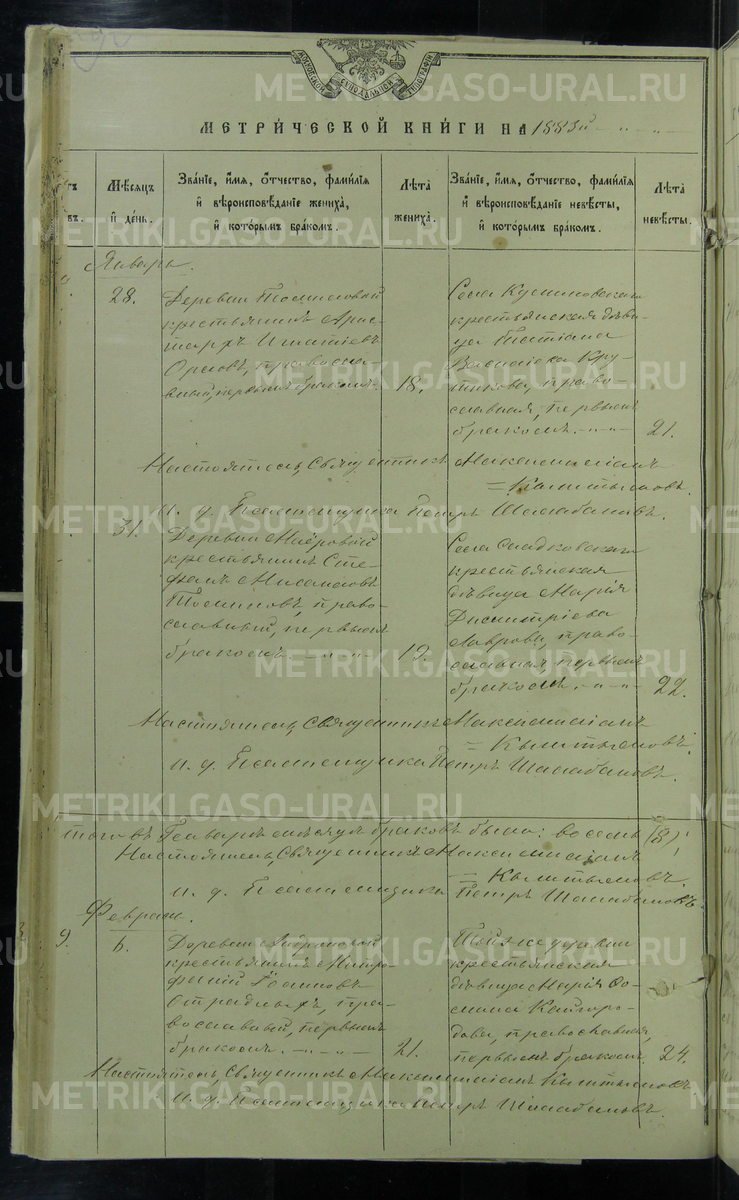 МЕТРИ́ЧЕСКОЙ КНИ́ГИ НА 1883й
Мѣсяцъ и̑ де́нь.
Зва́нїе, и̑́мя, Ѻ҆́тчество, фами́лїя и̑ вѣроисповѣ́данїе жениха̀, и̑ кото́рымъ бра́комъ.
Лѣ́та жениха̀.
Зва́нїе, и̑́мя, Ѻ҆́тчество, фами́лїя и̑ вѣроисповѣ́данїе невѣ́сты, и̑ кото́рымъ бра́комъ.
Лѣ́та невѣ́сты.
Январь.
28.
Деревни
крестьянинъ Арис-
тархъ Игнатіевъ
Орловъ, правосла-
вный, первымъ бракомъ.
18.
Села
крестьянская дѣви-
ца Татіана
Кру-
тикова, право-
славная, первымъ
бракомъ.
21.
Настоятель, Священникъ Максимиліанъ
= Кыштымовъ.
и. д. Псаломщика Петръ Шалабановъ.
31.
Деревни
крестьянинъ Сте-
фанъ
право-
славный, первымъ
бракомъ.
19.
Села Сладковскаго
крестьянская
дѣвица Марія
Димитріева
Лаврова, право-
славная первымъ
бракомъ.
22.
Настоятель, Священникъ Максимиліанъ
= Кыштымовъ.
и. д. Псаломщика Петръ Шалабановъ.
Итого въ Январѣ мѣсяцѣ браковъ было: восемь (8).
Настоятель, Священникъ Максимиліанъ
= Кыштымовъ.
и. д. Псаломщика Петръ Шалабановъ.
Февраль.
9.
6.
Деревни
крестьянинъ Митро-
фаній Іоанновъ
Отрадныхъ, пра-
вославный, первымъ
бракомъ.
21.
Той же деревни
крестьянская
дѣвица Марія Ѳо-
мина Кайгоро-
дова, православная,
первымъ бракомъ.
24.
Настоятель, Священникъ Максимиліанъ Кыштымовъ
и. д. Псаломщика Петръ Шалабановъ.
METRIKI.GASO-URAL.RU